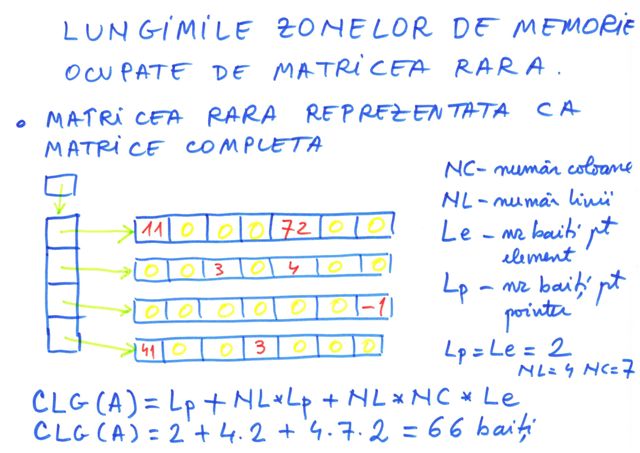 LUNGIMILE ZONELOR DE MEMORIE
OCUPATE DE MATRICEA RARA.
• MATRICEA RARA REPREZENTATA CA
MATRICE COMPLETA
11 0 0 0 72 0 0
0 0 3 0 4 0 0
0 0 0 0 0 0 -1
41 0 0 3 0 0 0
NC - număr coloane
NL - număr linii
Le - nr baiți pt
element
Lp - nr baiți pt
pointer
Lp = Le = 2
NL = 4 NC = 7
CLG(A) = Lp + NL*Lp + NL * NC * Le
CLG(A) = 2 + 4.2 + 4.7.2 = 66 baiți